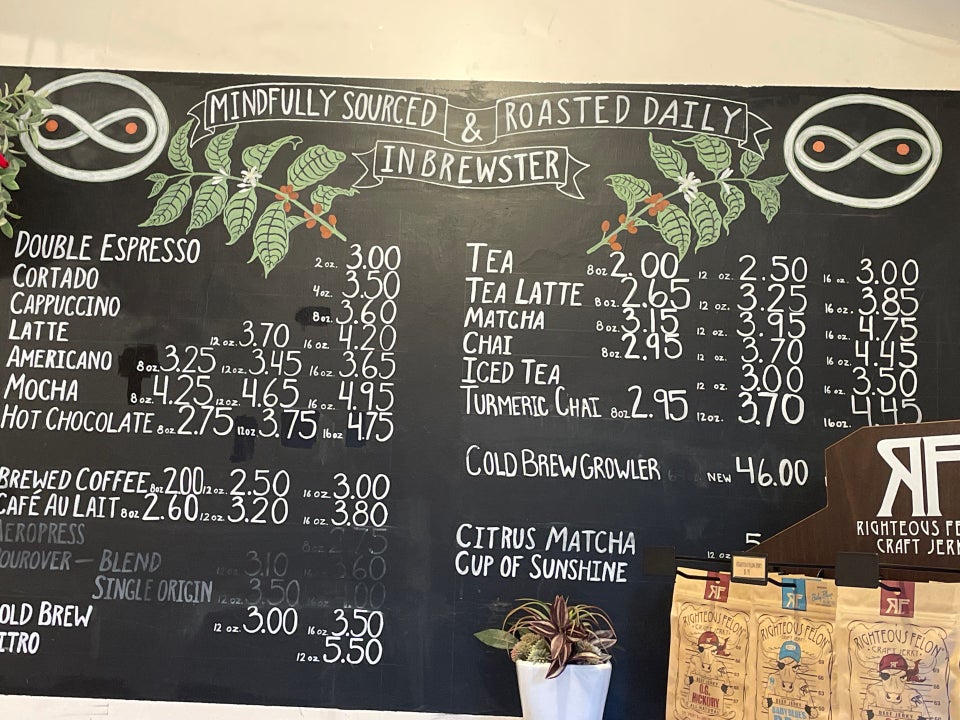 MINDFULLY SOURCED & ROASTED DAILY
IN BREWSTER
DOUBLE ESPRESSO 2 oz. 3.00
CORTADO 4oz. 3.50
CAPPUCCINO 8oz. 3.60
LATTE 12oz. 3.70 16 oz. 4.20
AMERICANO 8oz 3.25 12oz. 3.45 16oz. 3.65
MOCHA 8oz 4.25 12oz. 4.65 16 oz. 4.95
HOT CHOCOLATE 8oz 2.75 12oz. 3.75 16oz 4.75
BREWED COFFEE 8oz 2.00 12oz. 2.50 16 oz. 3.00
CAFÉ AU LAIT 8oz 2.60 12oz 3.20 16 oz. 3.80
AEROPRESS 8oz 2.75
POUROVER — BLEND 12oz. 3.10 16 3.60
SINGLE ORIGIN 12oz. 3.50
OLD BREW 12 oz. 3.00 16oz. 3.50
ITRO 12 oz 5.50
TEA 8oz 2.00 12 oz. 2.50 16 oz. 3.00
TEA LATTE 8oz. 2.65 12 oz. 3.25 16oz. 3.85
MATCHA 8oz 3.15 12 oz. 3.95 16 oz. 4.75
CHAI 8oz 2.95 12 oz. 3.70 16oz. 4.45
ICED TEA 12 oz. 3.00 16 oz. 3.50
TURMERIC CHAI 8oz 2.95 12oz. 3.70 16oz. 4.45
COLD BREW GROWLER NEW 46.00
CITRUS MATCHA 12 oz 5
CUP OF SUNSHINE
RF
RIGHTEOUS FE
CRAFT JERK
RF
RF
RIGHTEOUS FELON
CRAFT JERKY
BEEF JERKY
O.G.
HICKORY
RIGHTEOUS FELON
CRAFT JERKY
BEEF JERKY
BABY BLUES
RIGHTEOUS FELON
CRAFT JERKY
BEEF JERKY